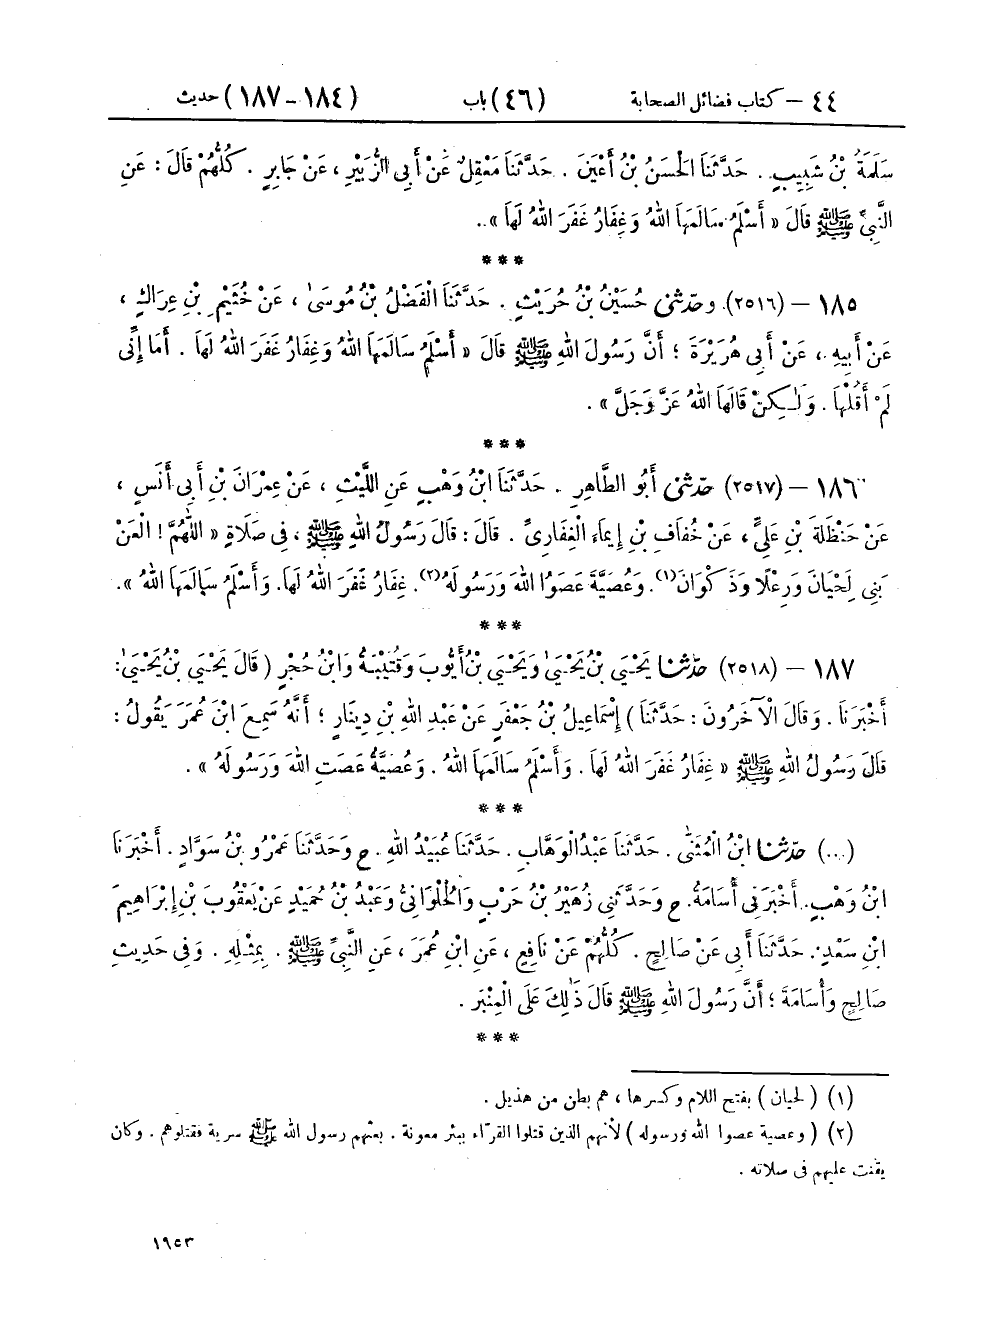 ٤٤ – كتاب فضائل الصحابة (٤٦) باب (١٨٤ – ١٨٧) حديث
سَلَمَةُ بْنُ شَبِيبٍ . حَدَّثَنَا الْحَسَنُ بْنُ أَعْيَنَ . حَدَّثَنَا مَعْقِلٌ عَنْ أَبِي الزُّبَيْرِ ، عَنْ جَابِرٍ . كُلُّهُمْ قَالَ : عَنِ
النَّبِيِّ ﷺ قَالَ « أَسْلَمُ سَالَمَهَا اللهُ وَغِفَارُ غَفَرَ اللهُ لَهَا » .
***
١٨٥ – (٢٥١٦) وحدثني حُسَيْنُ بْنُ حُرَيْثٍ . حَدَّثَنَا الْفَضْلُ بْنُ مُوسَىٰ ، عَنْ خُثَيْمِ بْنِ عِرَاكٍ ،
عَنْ أَبِيهِ ، عَنْ أَبِي هُرَيْرَةَ ؛ أَنَّ رَسُولَ اللهِ ﷺ قَالَ « أَسْلَمُ سَالَمَهَا اللهُ وَغِفَارُ غَفَرَ اللهُ لَهَا . أَمَا إِنِّي
لَمْ أَقُلْهَا . وَلَـٰكِنْ قَالَهَا اللهُ عَزَّ وَجَلَّ » .
***
١٨٦ – (٢٥١٧) حدثني أَبُو الطَّاهِرِ . حَدَّثَنَا ابْنُ وَهْبٍ عَنِ اللَّيْثِ ، عَنْ عِمْرَانَ بْنِ أَبِي أَنَسٍ ،
عَنْ حَنْظَلَةَ بْنِ عَلِيٍّ ، عَنْ خُفَافِ بْنِ إِيمَاءَ الْغِفَارِيِّ . قَالَ : قَالَ رَسُولُ اللهِ ﷺ ، فِي صَلَاةٍ « اللَّهُمَّ ! الْعَنْ
بَنِي لِحْيَانَ وَرِعْلًا وَذَكْوَانَ(١) . وَعُصَيَّةَ عَصَوُا اللهَ وَرَسُولَهُ(٢) . غِفَارُ غَفَرَ اللهُ لَهَا . وَأَسْلَمُ سَالَمَهَا اللهُ » .
***
١٨٧ – (٢٥١٨) حدثنا يَحْيَى بْنُ يَحْيَىٰ وَيَحْيَى بْنُ أَيُّوبَ وَقُتَيْبَةُ وَابْنُ حُجْرٍ ( قَالَ يَحْيَى بْنُ يَحْيَىٰ :
أَخْبَرَنَا . وَقَالَ الْآخَرُونَ : حَدَّثَنَا ) إِسْمَاعِيلُ بْنُ جَعْفَرٍ عَنْ عَبْدِ اللهِ بْنِ دِينَارٍ ؛ أَنَّهُ سَمِعَ ابْنَ عُمَرَ يَقُولُ :
قَالَ رَسُولُ اللهِ ﷺ « غِفَارُ غَفَرَ اللهُ لَهَا . وَأَسْلَمُ سَالَمَهَا اللهُ . وَعُصَيَّةُ عَصَتِ اللهَ وَرَسُولَهُ » .
***
(...) حدثنا ابْنُ الْمُثَنَّىٰ . حَدَّثَنَا عَبْدُ الْوَهَّابِ . حَدَّثَنَا عُبَيْدُ اللهِ . ح وَحَدَّثَنَا عَمْرُو بْنُ سَوَّادٍ . أَخْبَرَنَا
ابْنُ وَهْبٍ . أَخْبَرَنِي أُسَامَةُ . ح وَحَدَّثَنِي زُهَيْرُ بْنُ حَرْبٍ وَالْحُلْوَانِيُّ وَعَبْدُ بْنُ حُمَيْدٍ عَنْ يَعْقُوبَ بْنِ إِبْرَاهِيمَ
ابْنِ سَعْدٍ . حَدَّثَنَا أَبِي عَنْ صَالِحٍ . كُلُّهُمْ عَنْ نَافِعٍ ، عَنِ ابْنِ عُمَرَ ، عَنِ النَّبِيِّ ﷺ . بِمِثْلِهِ . وَفِي حَدِيثِ
صَالِحٍ وَأُسَامَةَ ؛ أَنَّ رَسُولَ اللهِ ﷺ قَالَ ذَٰلِكَ عَلَى الْمِنْبَرِ .
***
(١) ( لحيان ) بفتح اللام وكسرها ، هم بطن من هذيل .
(٢) ( وعصية عصوا الله ورسوله ) لأنهم الذين قتلوا القرّاء ببئر معونة . بعثهم رسول الله ﷺ سرية فقتلوهم . وكان
يقنت عليهم في صلاته .
١٩٥٣